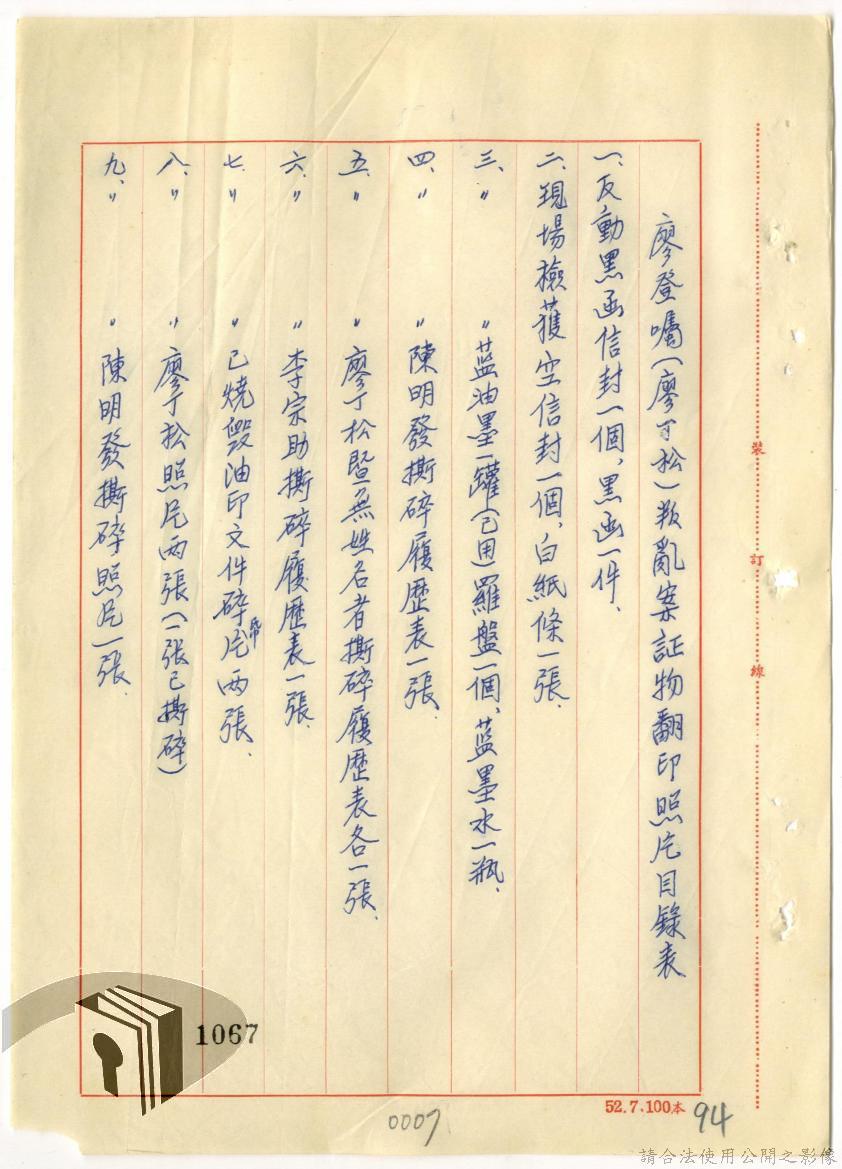 廖登囑(廖丁松)叛亂案証物翻印照片目錄表
一、反動黑函信封一個、黑函一件、
二、現場檢獲空信封一個、白紙條一張、
三、〃 〃藍油墨一罐(已用)羅盤一個、藍墨水一瓶、
四、〃 〃陳明發撕碎履歷表一張、
五、〃 〃廖丁松暨無姓名者撕碎履歷表各一張、
六、〃 〃李宗助撕碎履歷表一張、
七、〃 〃已燒毀油印文件碎片兩張、
八、〃 〃廖丁松照片兩張(一張已撕碎)
九、〃 〃陳明發撕碎照片一張、
裝
訂
線
1067
0007
52.7.100本
94
請合法使用公開之影像